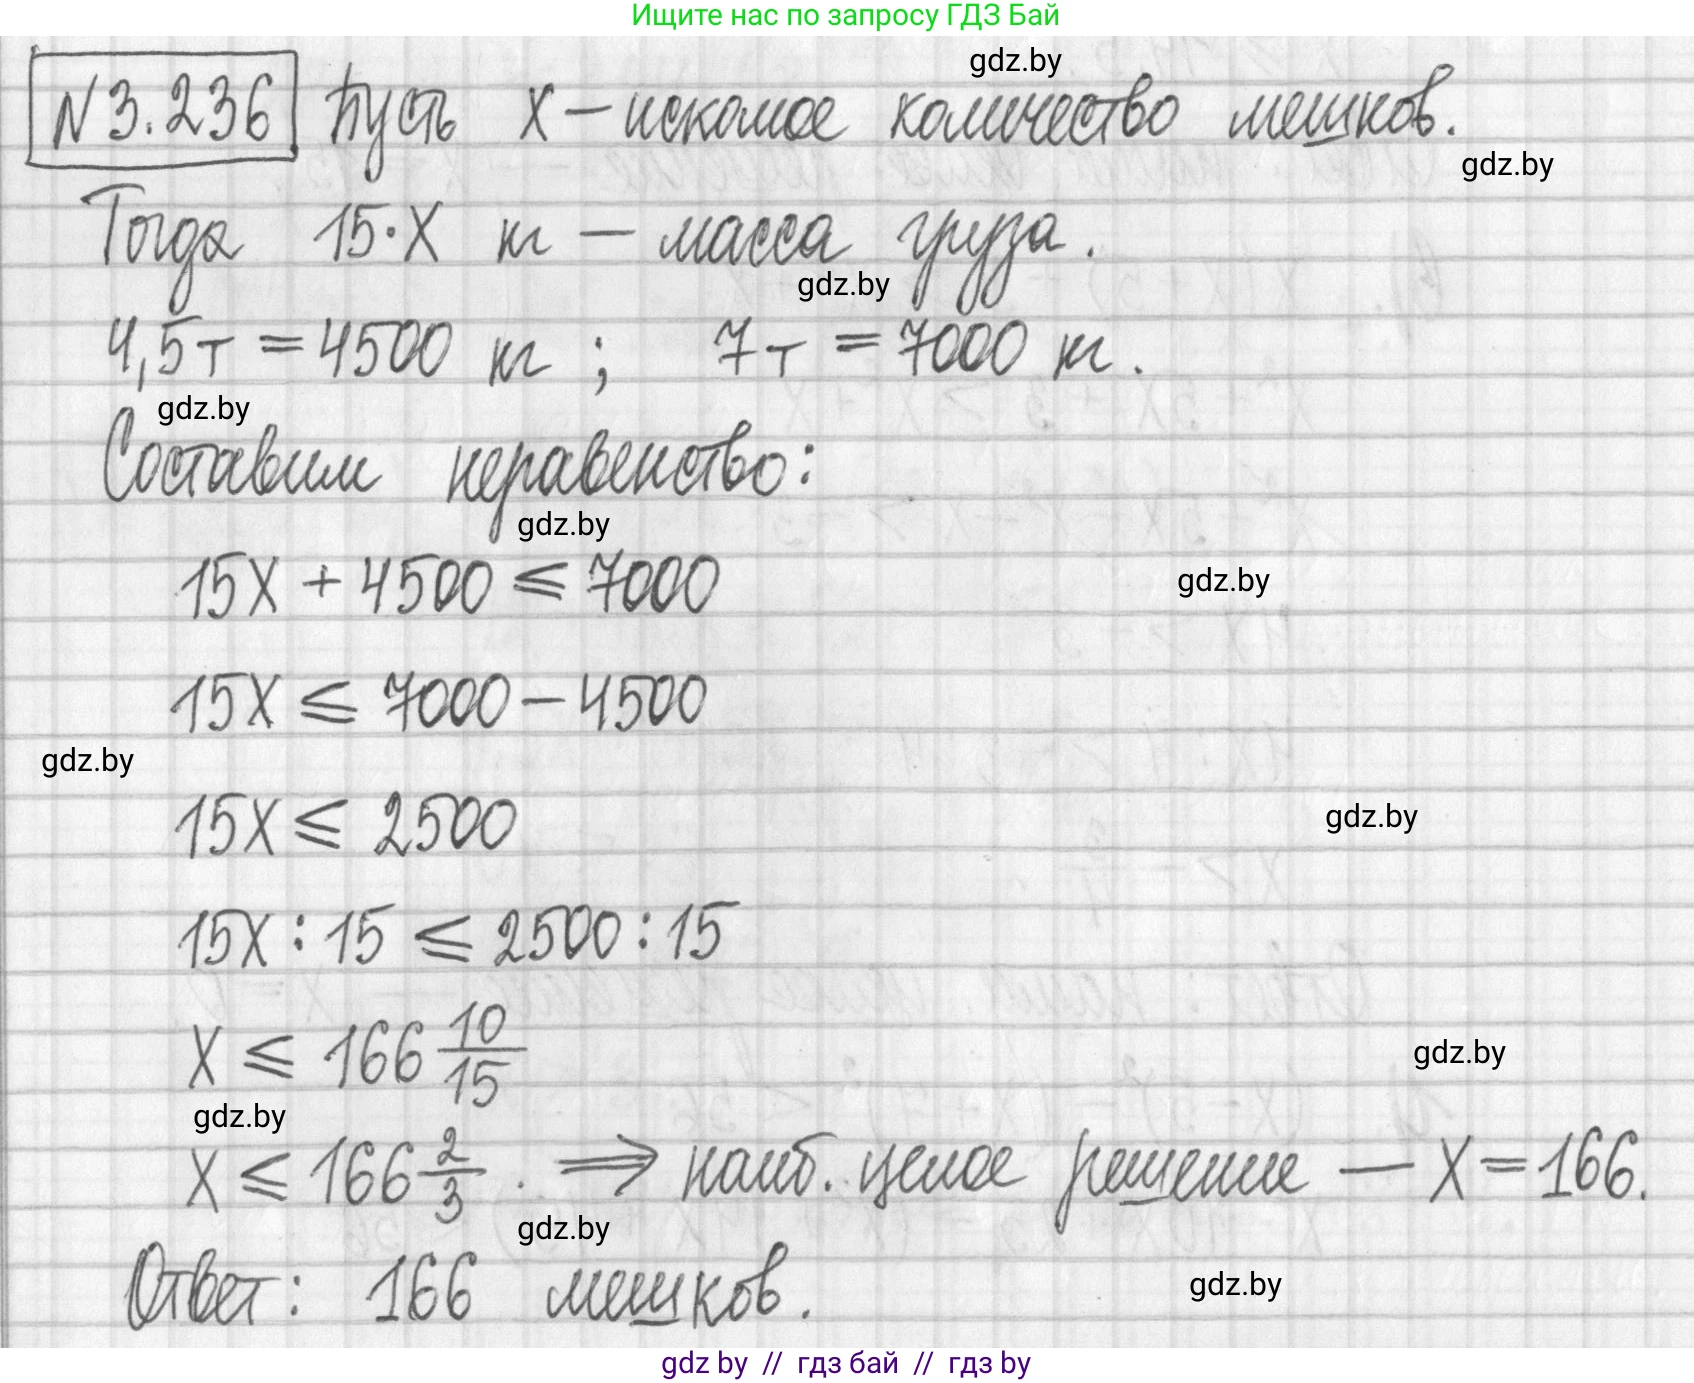 Ищите нас по запросу ГДЗ Бай
gdz.by
№3.236 Пусть x – искомое количество мешков.
gdz.by
Тогда 15·x кг – масса груза.
gdz.by
4,5т = 4500 кг ; 7т = 7000 кг.
gdz.by
Составим неравенство:
gdz.by
15x + 4500 ⩽ 7000
gdz.by
15x ⩽ 7000 – 4500
gdz.by
15x ⩽ 2500
gdz.by
15x : 15 ⩽ 2500 : 15
x ⩽ 166 10/15
gdz.by
gdz.by
x ⩽ 166 2/3 . ⇒ наиб. целое решение – x = 166.
gdz.by
gdz.by
Ответ: 166 мешков.
gdz by // гдз бай // гдз by